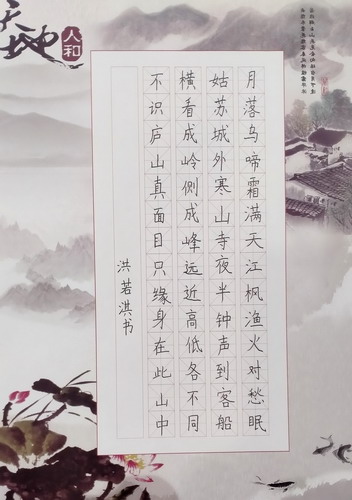 天地
人和
月落乌啼霜满天江枫渔火对愁眠
姑苏城外寒山寺夜半钟声到客船
横看成岭侧成峰远近高低各不同
不识庐山真面目只缘身在此山中
洪若淇书